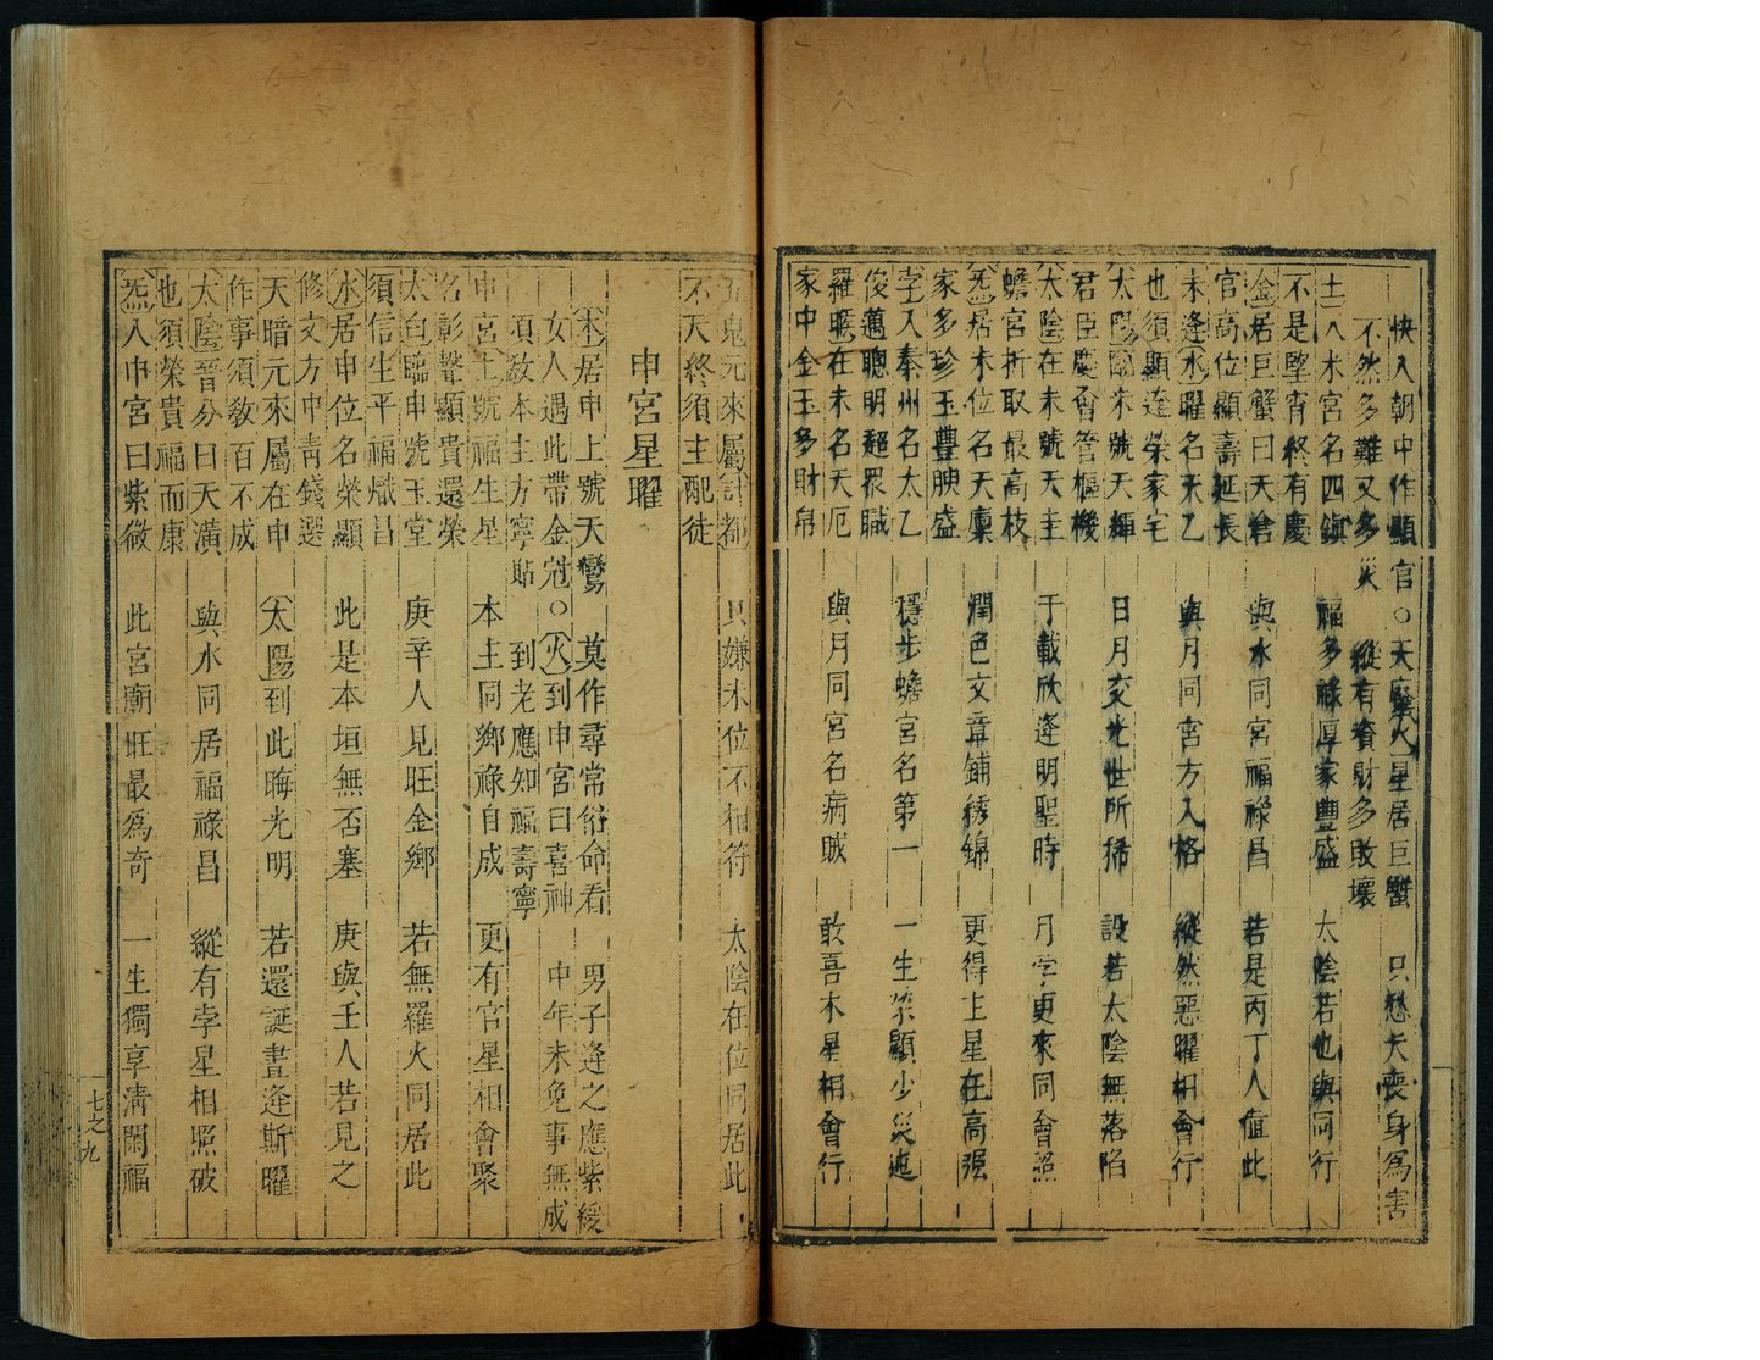 快入朝中作顯官○天廢火星居巨蟹 只愁夭喪身爲害
不然多難又多災 縱有資財多敗壞
土入未宮名四鎭 福多祿厚家豐盛 太陰若也與同行
不是墜宵終有慶
金居巨蟹曰天倉 與水同宮福祿昌 若是丙丁人值此
官高位顯壽延長
未逢水曜名天乙 與月同宮方入格 縱然惡曜相會行
也須顯達榮家宅
太陽到未號天輝 日月交光世所稀 設若太陰無落陷
君臣慶會管樞機
太陰在未號天圭 千載欣逢明聖時 月孛更來同會照
蟾宮折取最高枝
炁居未位名天廩 潤色文章鋪綉錦 更得土星在高強
家多珍玉豐腴盛
孛入秦州名太乙 穩步蟾宮名第一 一生榮顯少災迍
俊邁聰明超衆職
羅睺在未名天厄 與月同宮名病賊 敢喜木星相會行
家中金玉多財帛
五鬼元來屬計都 只嫌未位不相符 太陰在位同居此
不夭終須主配徒
申宮星曜
木居申上號天鸞 莫作尋常俗命看 男子逢之應紫綬
女人遇此帶金冠○火到申宮曰喜神 中年未免事無成
項敎本主方寧貼 到老應知福壽寧
申宮土號福生星 本主同鄉祿自成 更有官星相會聚
名彰聲顯貴還榮
太白臨申號玉堂 庚辛人見旺金鄉 若無羅火同居此
須信生平福熾昌
水居申位名榮顯 此是本垣無否塞 庚與壬人若見之
修文方中靑錢選
天暗元來屬在申 太陽到此晦光明 若還誕晝逢斯曜
作事須敎百不成
太陰晉分曰天潢 與水同居福祿昌 縱有孛星相照破
也須榮貴福而康
炁入申宮曰紫微 此宮廟旺最爲奇 一生獨享淸閑福
七之九